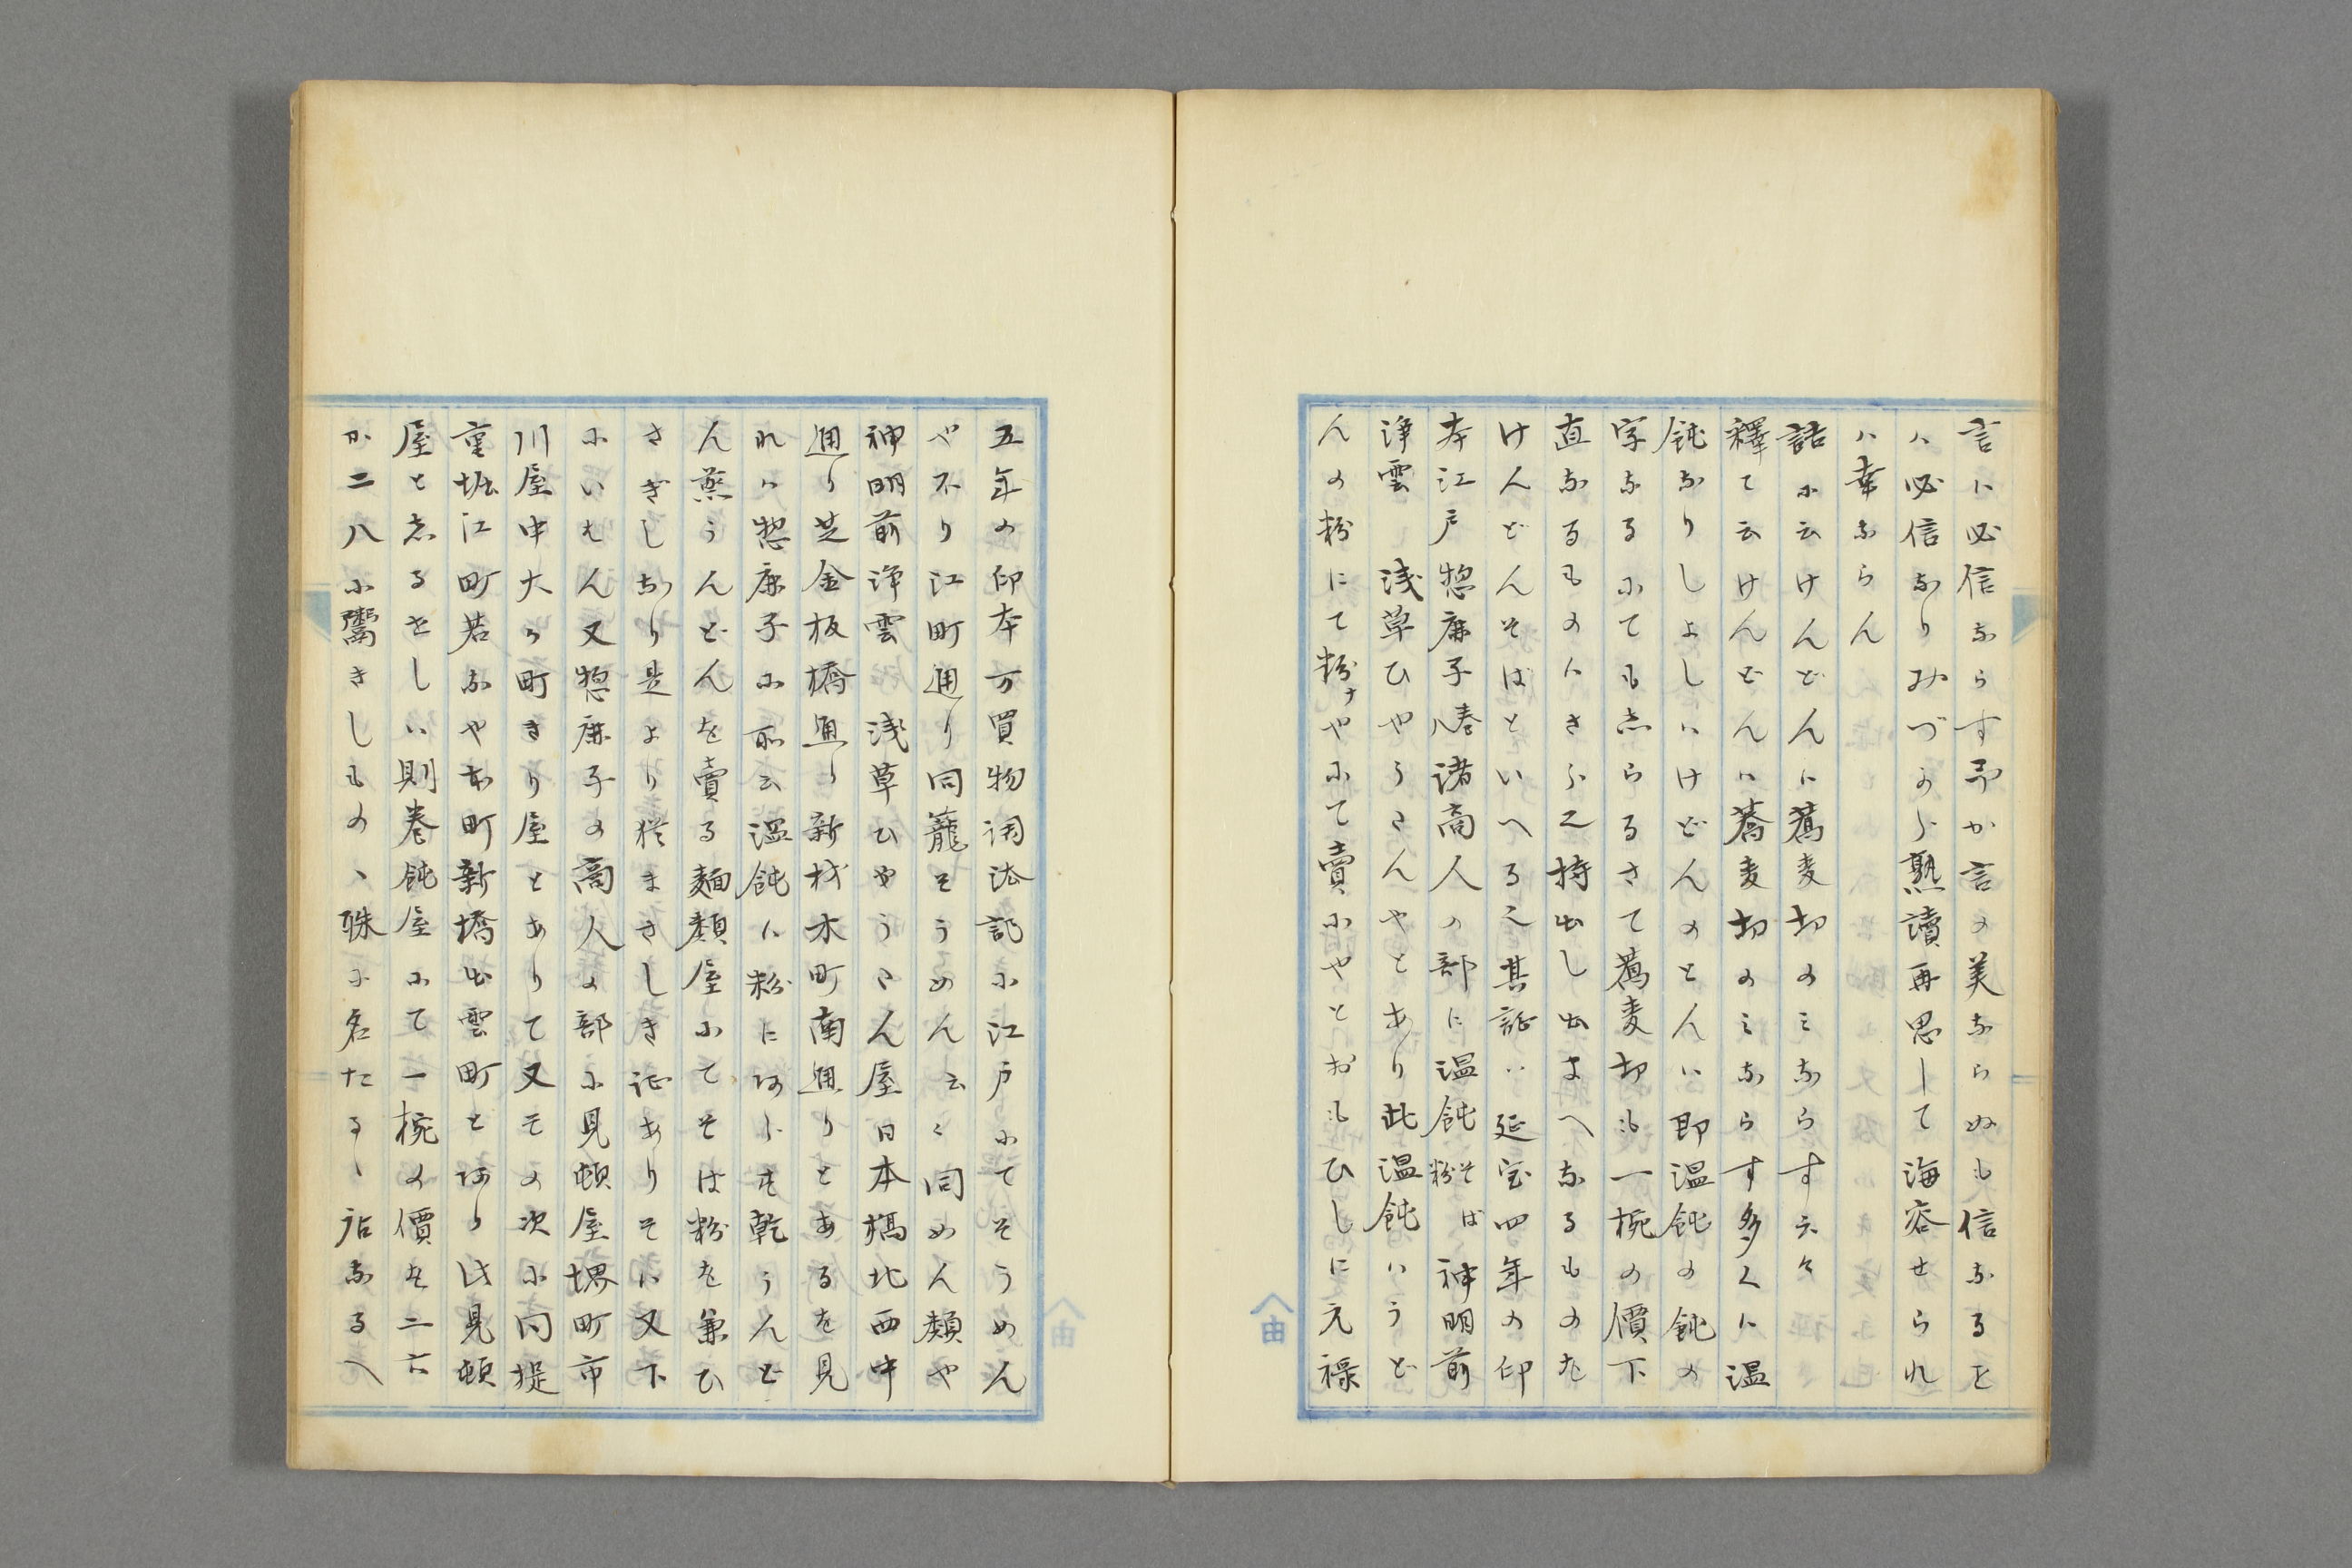 言ハ必信ならす予か言の美ならぬも信なるを
ハ必信なりみづから熟讀再思して海容せられ
ハ幸ならん
詰に云けんどんハ蕎麦切のミならす云々
釋て云けんどんハ蕎麦切のミならす多くハ温
飩なりしよしハけどんのとんハ即温飩の飩の
字なるにても志らるさて蕎麦切も一椀の價下
直なるものハさら之持出し出まへなるものを
けんどんそばといへる之其証ハ延宝四年の印
本江戸惣鹿子巻八諸商人の部に温飩そば粉神明前
浄雲浅草ひやうたんやとあり此温飩ハうど
んの粉にて粉ナやにて賣にやとおもひしに元禄
五年の印本万買物調法記に江戸にてそうめん
や不り江町通り同籠そうめん云々同めん類や
神明前浄雲浅草ひやうたん屋日本橋北西中
通り芝金板橋通り新材木町南通りとあるを見
れハ惣鹿子に所云温飩ハ粉にあらも乾うんど
ん蒸うんどんを賣る麺類屋にてそは粉を兼ひ
さぎしなり是より猶まさしき証ありそハ又下
にいもん又惣鹿子の商人の部に見頓屋堺町市
川屋中大ゟ町きり屋とありて又その次に同堤
重堀江町若なや本町新橋出雲町とあり此見頓
屋と志るせしハ則巻飩屋にて一椀の價を二六
か二八に鬻きしもの、殊に名たる、店なるへ